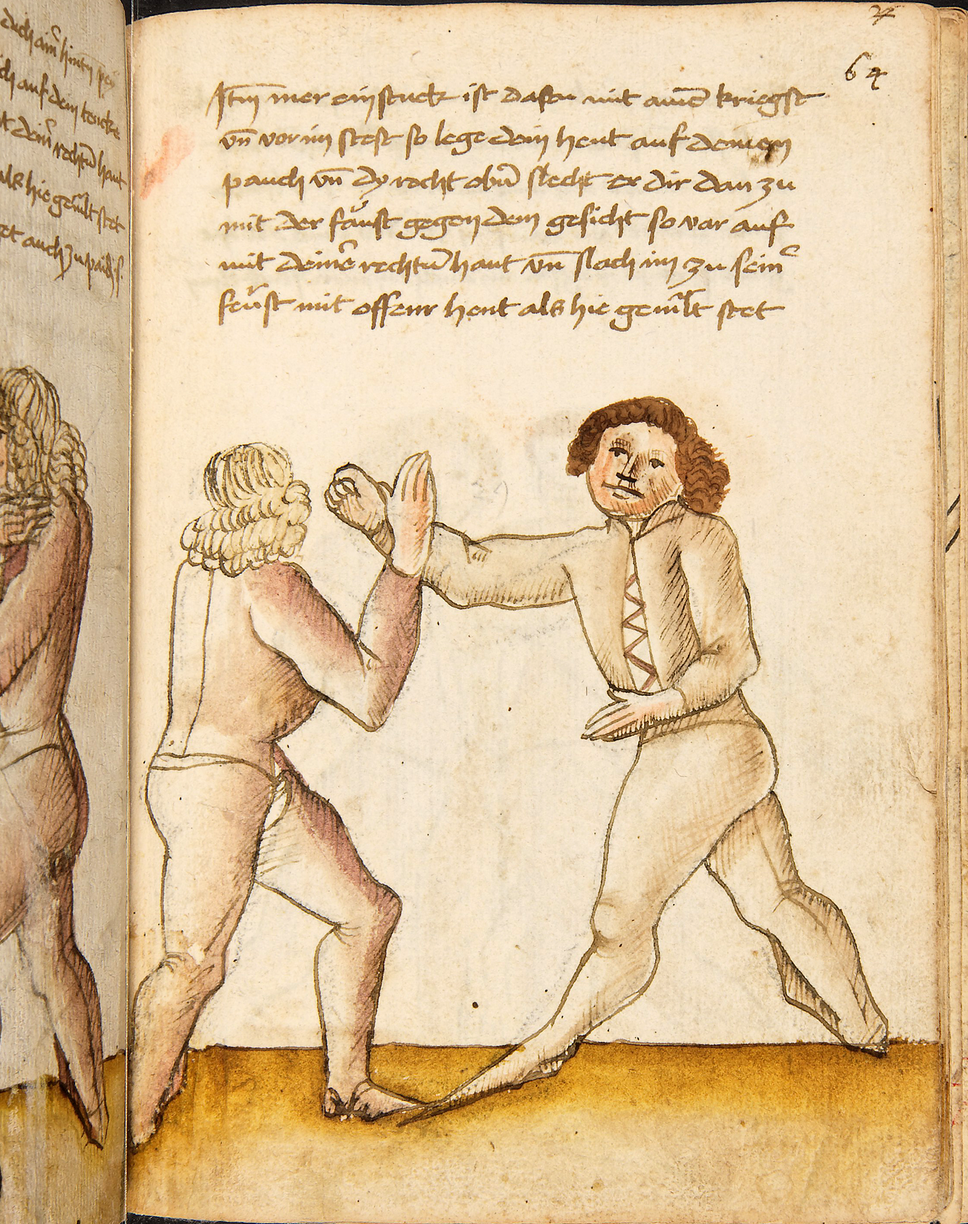 dich am hintn
ich auf dem
t deinr rechtn hant
als hie gemlt stet
et auch zu
64
Itm mer ein stuck ist dastu mit aimē kriegst
vn̄ vor im stest so lege dein hent auf deinen
pauch vn̄ dy recht obn̄ slecht er dir dan zu
mit der faust gegen dem gesicht so var auf
mit deinē rechtn̄ hant vn̄ slach im zu sein
feust mit offenr hent als hie gemlt stet